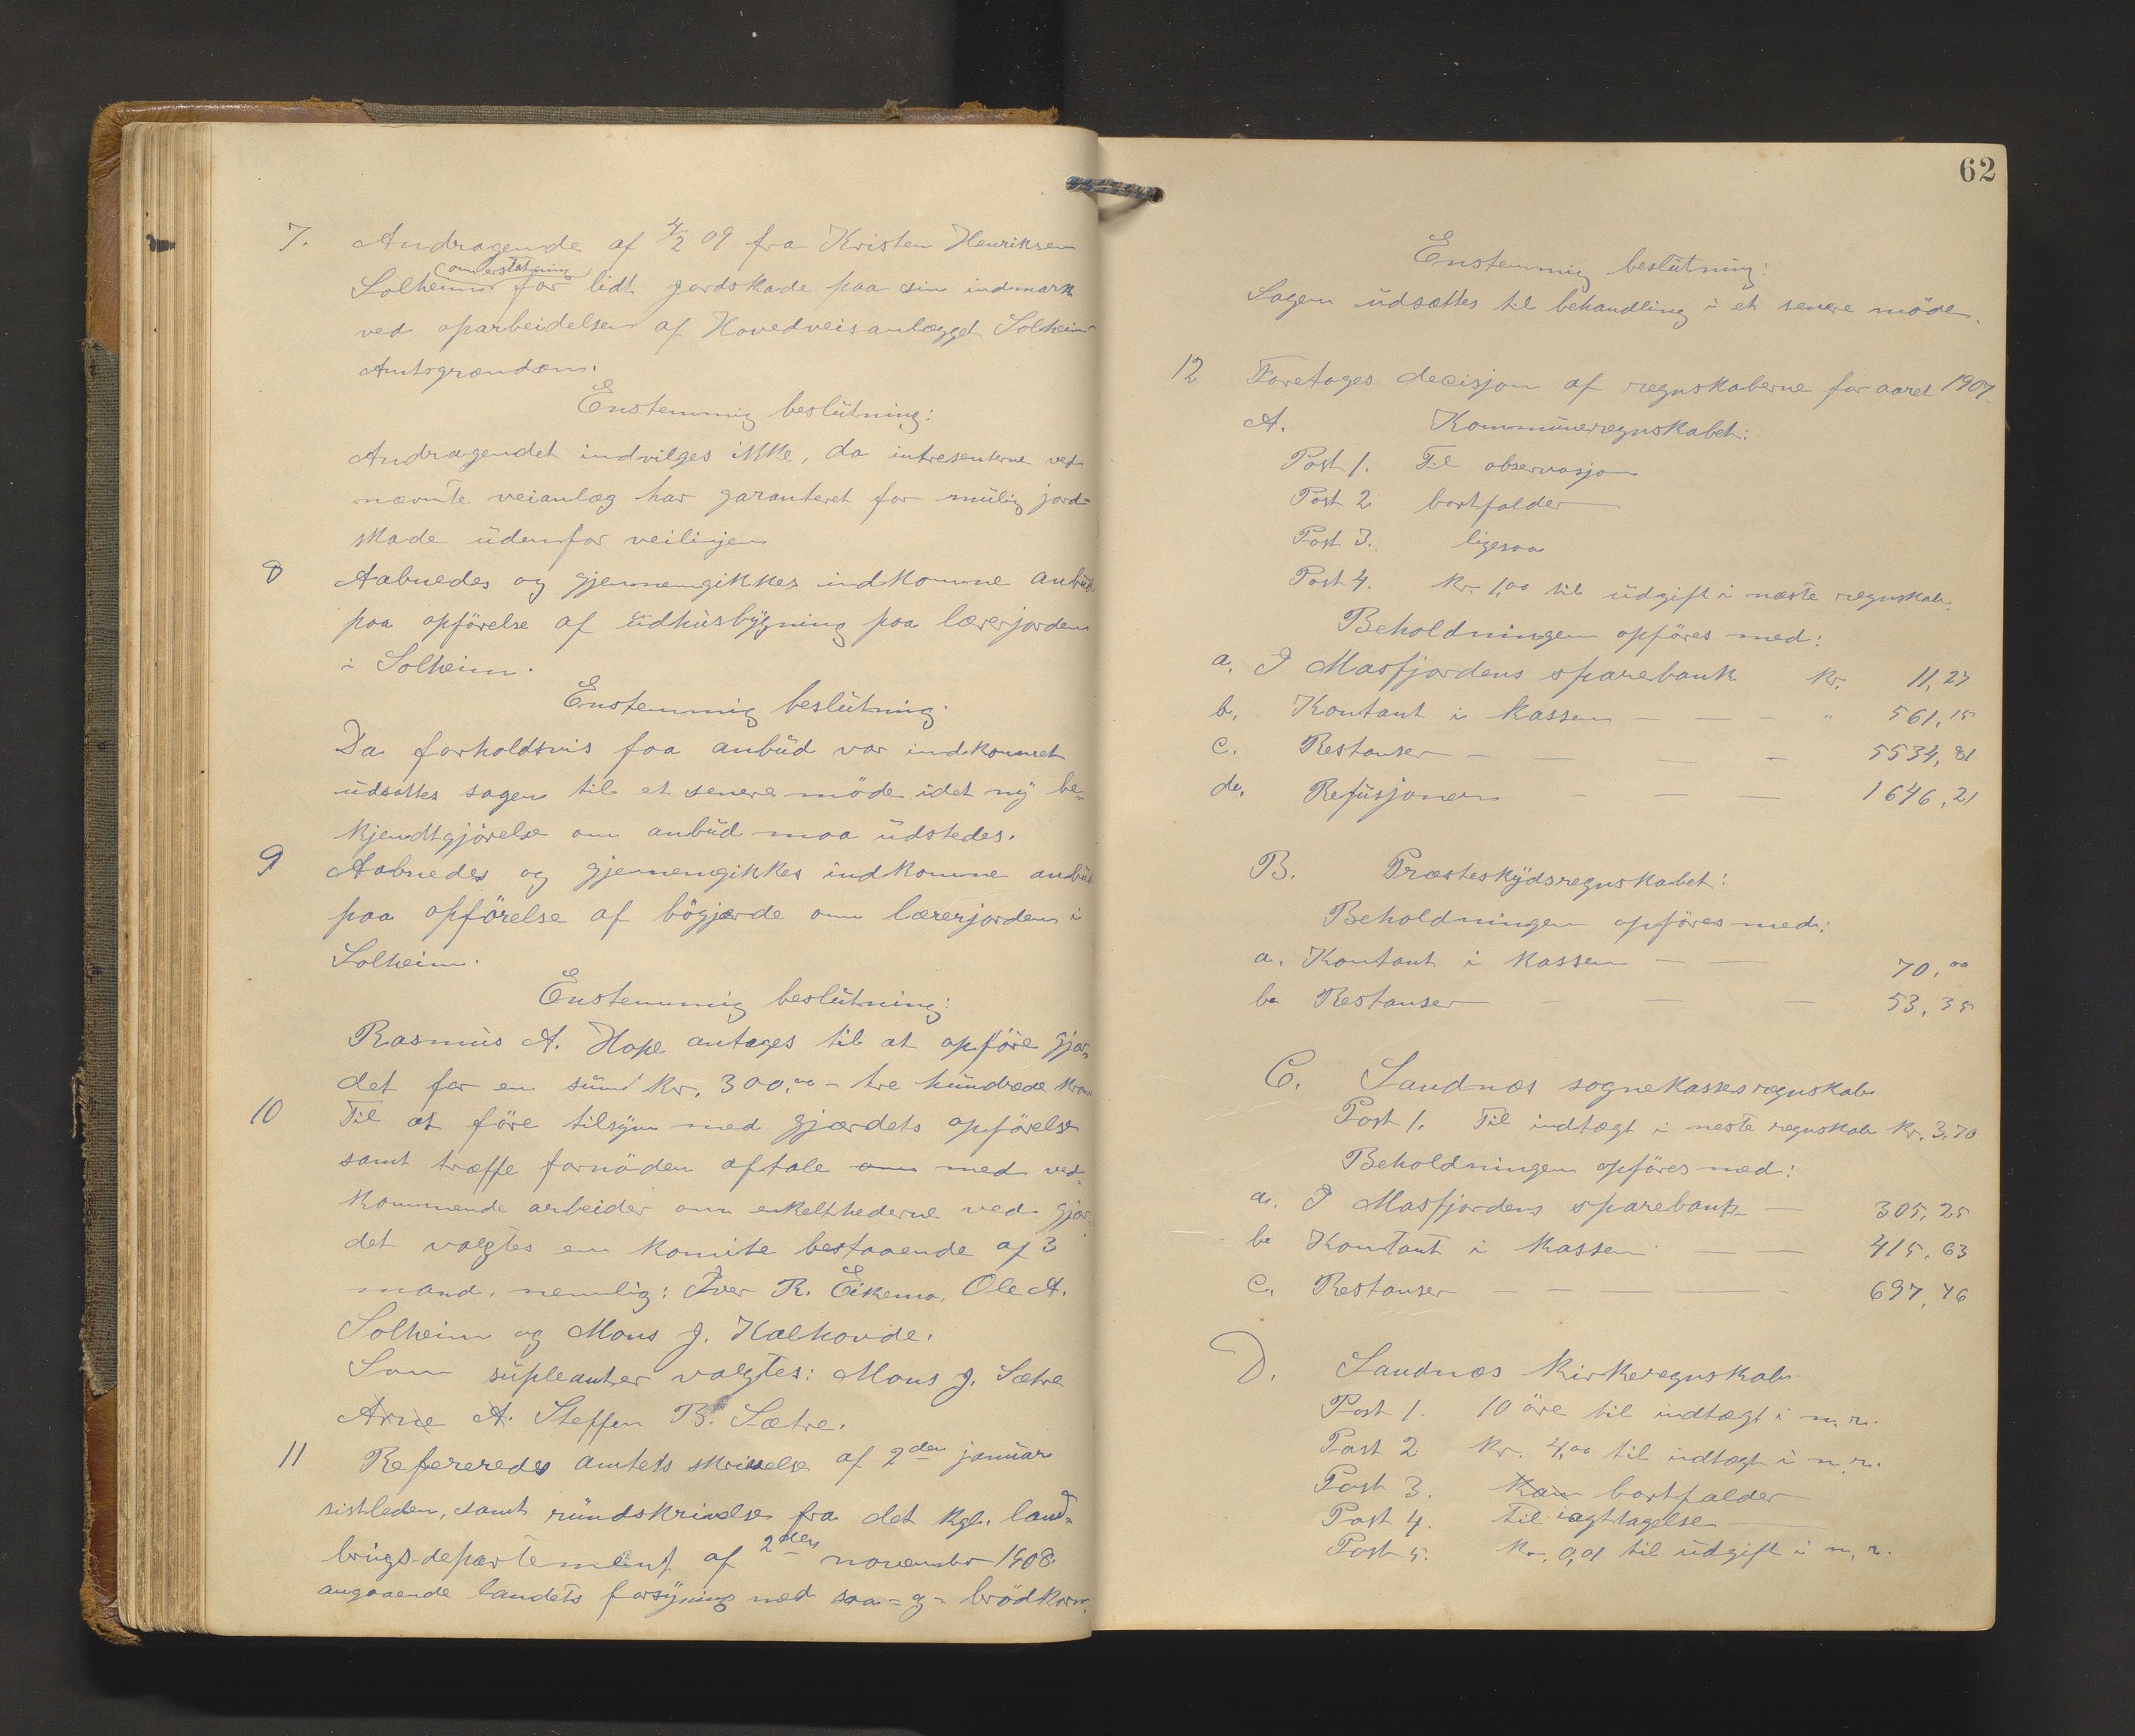 7. Andragende af 4/2 09 fra Kristen Henriksen
(om erstatning)
Solheim for lidt jordskade paa sin indmark
ved oparbeidelsen af Hovedveisanlægget Solheim
Amtsgrændsen.
Enstemmig beslutning:
Andragendet indvilges ikke, da intresenterne ved
nævnte veianlæg har garanteret for mulig jord-
skade udenfor veilinjen
8 Aabnedes og gjennemgikkes indkomne anbud
paa opförelse af udhusbygning paa lærerjorden
i Solheim.
Enstemmig beslutning.
Da forholdsvis faa anbud var indkommet
udsattes sagen til et senere möde idet ny be-
kjendtgjörelse om anbud maa udstedes.
9 Aabnedes og gjennemgikkes indkomne anbud
paa opförelse af bögjærde om lærerjorden i
Solheim.
Enstemmig beslutning:
Rasmus A. Hope antages til at opföre gjær-
det for en sum kr. 300,00 - tre hundrede kron
10 Til at före tilsyn med gjærdets opförelse
samt træffe fornöden aftale om med ved-
kommende arbeider om enkelthederne ved gjær-
det valgtes en komite bestaaende af 3
mand, nemlig: Iver R. Eikemo, Ole A.
Solheim og Mons J. Kalhovde.
Som supleanter valgtes: Mons J. Sætre
Arne A. Steffen B. Sætre.
11 Refereredes amtets skrivelse af 2den januar
sistleden, samt rundskrivelse fra det kgl. land-
brugsdepartement af 2den november 1908
angaaende landets forsyning med saa- g- brödkorn.
62
Enstemmig beslutning:
Sagen udsættes til behandling i et senere möde.
12 Foretages decisjon af regnskaberne for aaret 1907.
A. Kommuneregnskabet:
Post 1. Til observasjon
Post 2 bortfalder
Post 3. ligesaa
Post 4. kr. 1,00 til udgift i næste regnskab.
Beholdningen opföres med:
a. I Masfjordens sparebank kr. 11,27
b. Kontant i kassen — — - " 561,15
c. Restanser - — — - 5534,81
d. Refusjoner — — — 1646,21
B. Præsteskydsregnskabet:
Beholdningen opföres med:
a. Kontant i kassen — — 70,00
b. Restanser — — 53,35
C. Sandnes sognekasses regnskab
Post 1. Til indtægt i neste regnskab kr. 3,70
Beholdningen opföres med:
a. I Masfjordens sparebank — 305,25
b. Kontant i kassen — — 415,63
c. Restanser — — — — 697,76
D. Sandnes kirkeregnskab.
Post 1. 10 öre til indtægt i n. r.
Post 2 kr. 4,00 til indtægt i n. r.
Post 3. Kan bortfalder
Post 4. Til iagttagelse
Post 5. kr. 0,01 til udgift i n. r.